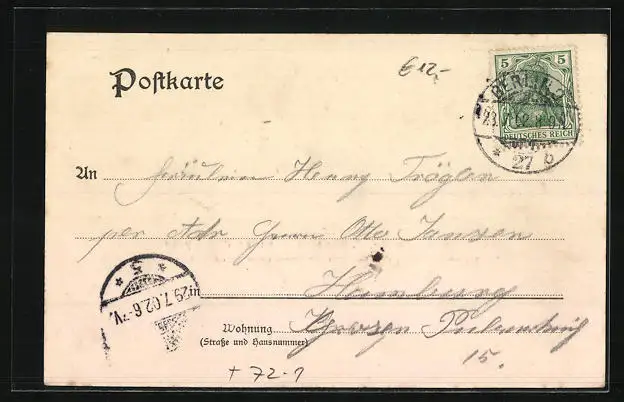 €12,-
Postkarte
5 5
DEUTSCHES REICH
BERLIN
27 b
An Fräulein Henny
per Adr Otto Janssen
* 5 *
29.7.02.6-7V.
in Hamburg
Wohnung
(Straße und Hausnummer)
15.
+ 72-1